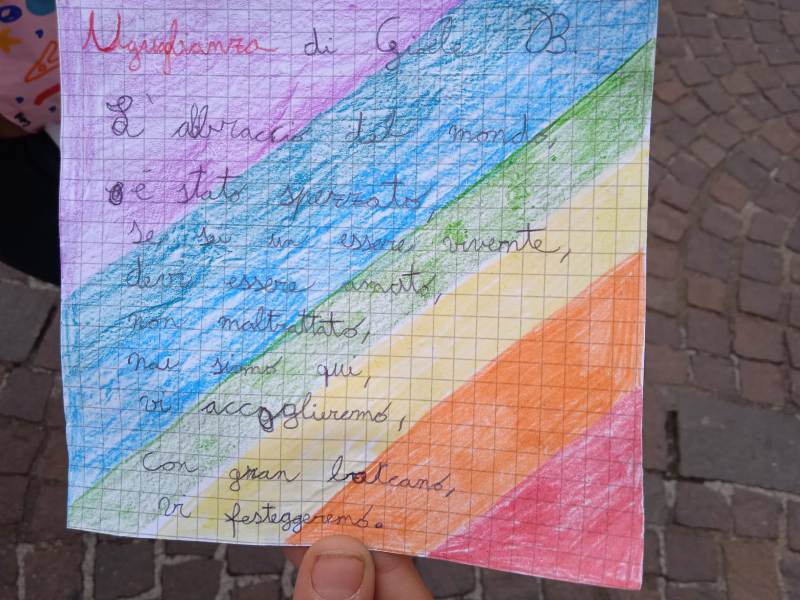 Uguglianza di Gioele B.
L'abbraccio del mondo,
è stato spezzato,
se sei un essere vivente,
devi essere amato,
non maltrattato,
noi siamo qui,
vi accoglieremo,
con gran baccano,
vi festeggeremo.